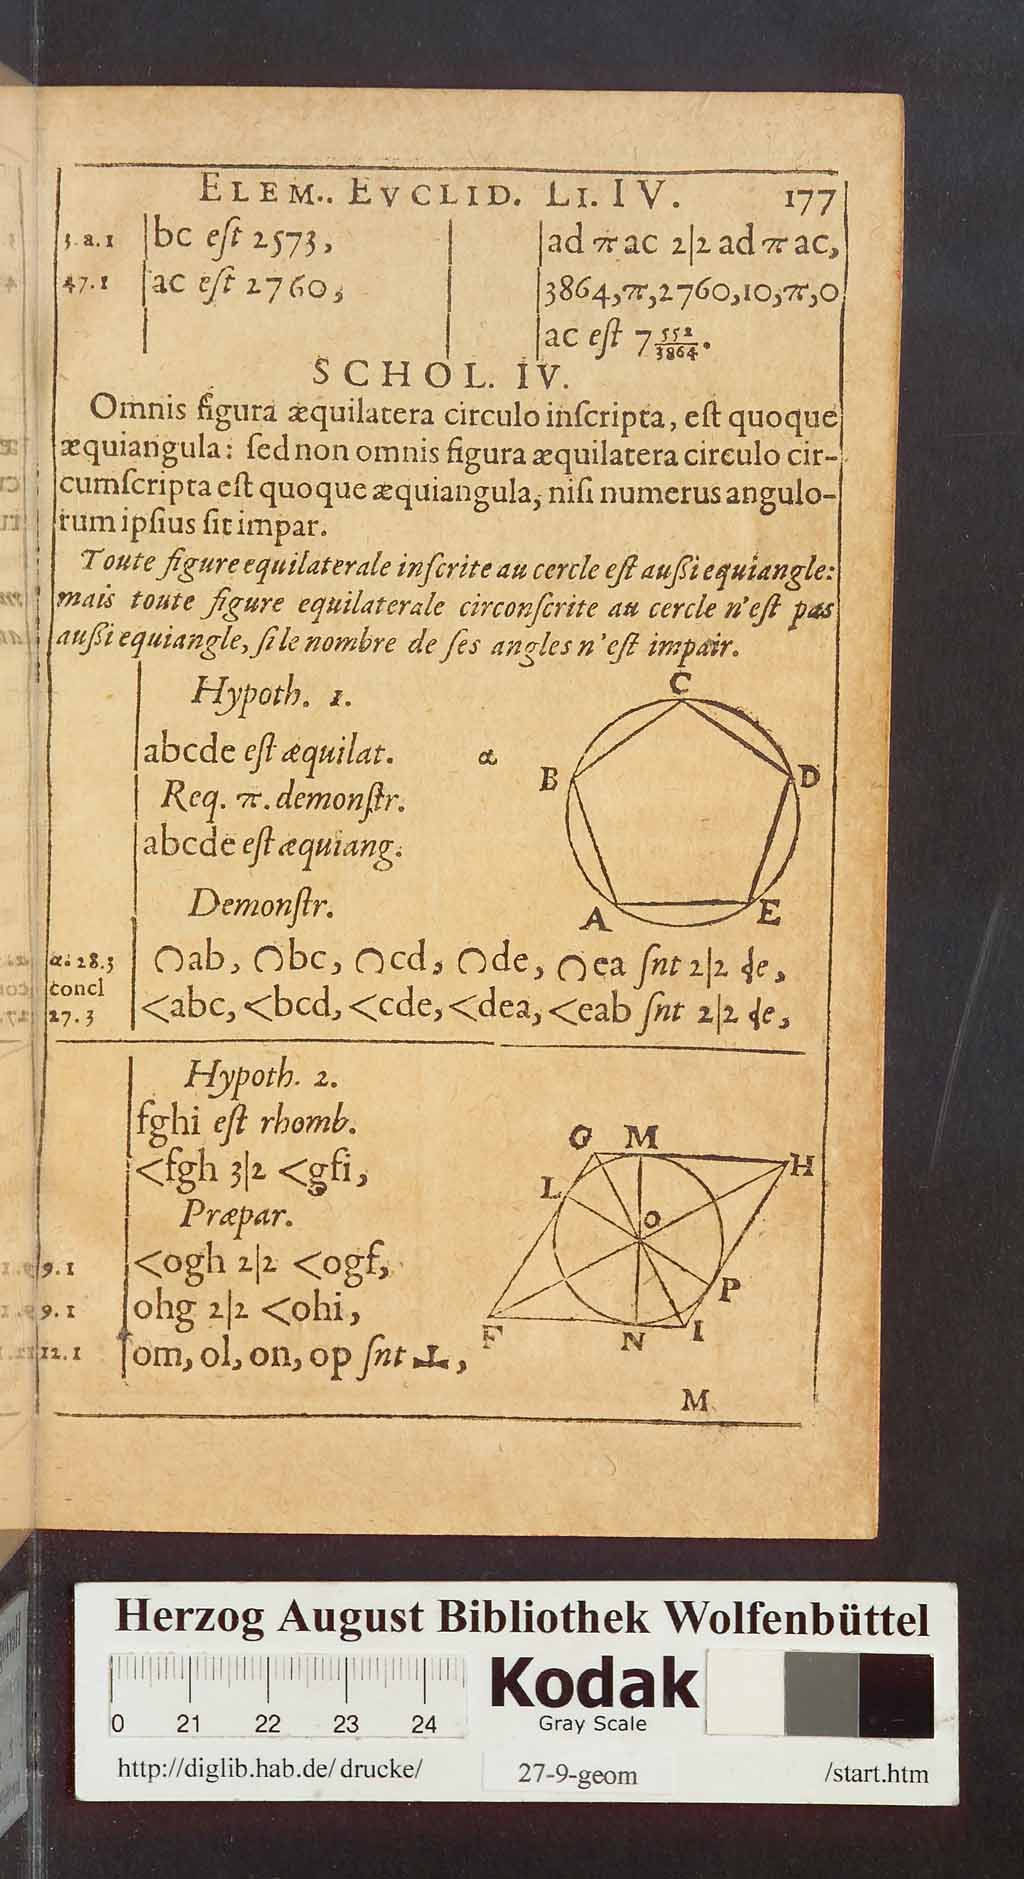 ELEM.. EVCLID. LI. IV. 177
3. a. 1 bc eſt 2573, ad π ac 2|2 ad π ac,
47. 1 ac eſt 2760, 3864, π, 2760, 10, π, 0
ac eſt 7 552/3864.
SCHOL. IV.
Omnis figura æquilatera circulo inſcripta, eſt quoque
æquiangula: ſed non omnis figura æquilatera circulo cir-
cumſcripta eſt quoque æquiangula, niſi numerus angulo-
rum ipſius ſit impar.
Toute figure equilaterale inſcrite au cercle eſt auſſi equiangle:
mais toute figure equilaterale circonſcrite au cercle n'eſt pas
auſſi equiangle, ſi le nombre de ſes angles n'eſt impair.
Hypoth. 1.
abcde eſt æquilat. α
Req. π. demonſtr.
abcde eſt æquiang.
Demonſtr.
C
B
D
A
E
α. 28. 3 ∩ab, ∩bc, ∩cd, ∩de, ∩ea ſnt 2|2 de,
concl
27. 3 <abc, <bcd, <cde, <dea, <eab ſnt 2|2 de,
Hypoth. 2.
fghi eſt rhomb.
<fgh 3|2 <gfi,
Præpar.
9. 1 <ogh 2|2 <ogf,
9. 1 ohg 2|2 <ohi,
12. 1 om, ol, on, op ſnt ⊥,
G M
H
L
O
P
F
N I
M
Herzog August Bibliothek Wolfenbüttel
Kodak
Gray Scale
0 21 22 23 24
http://diglib.hab.de/drucke/ 27-9-geom /start.htm